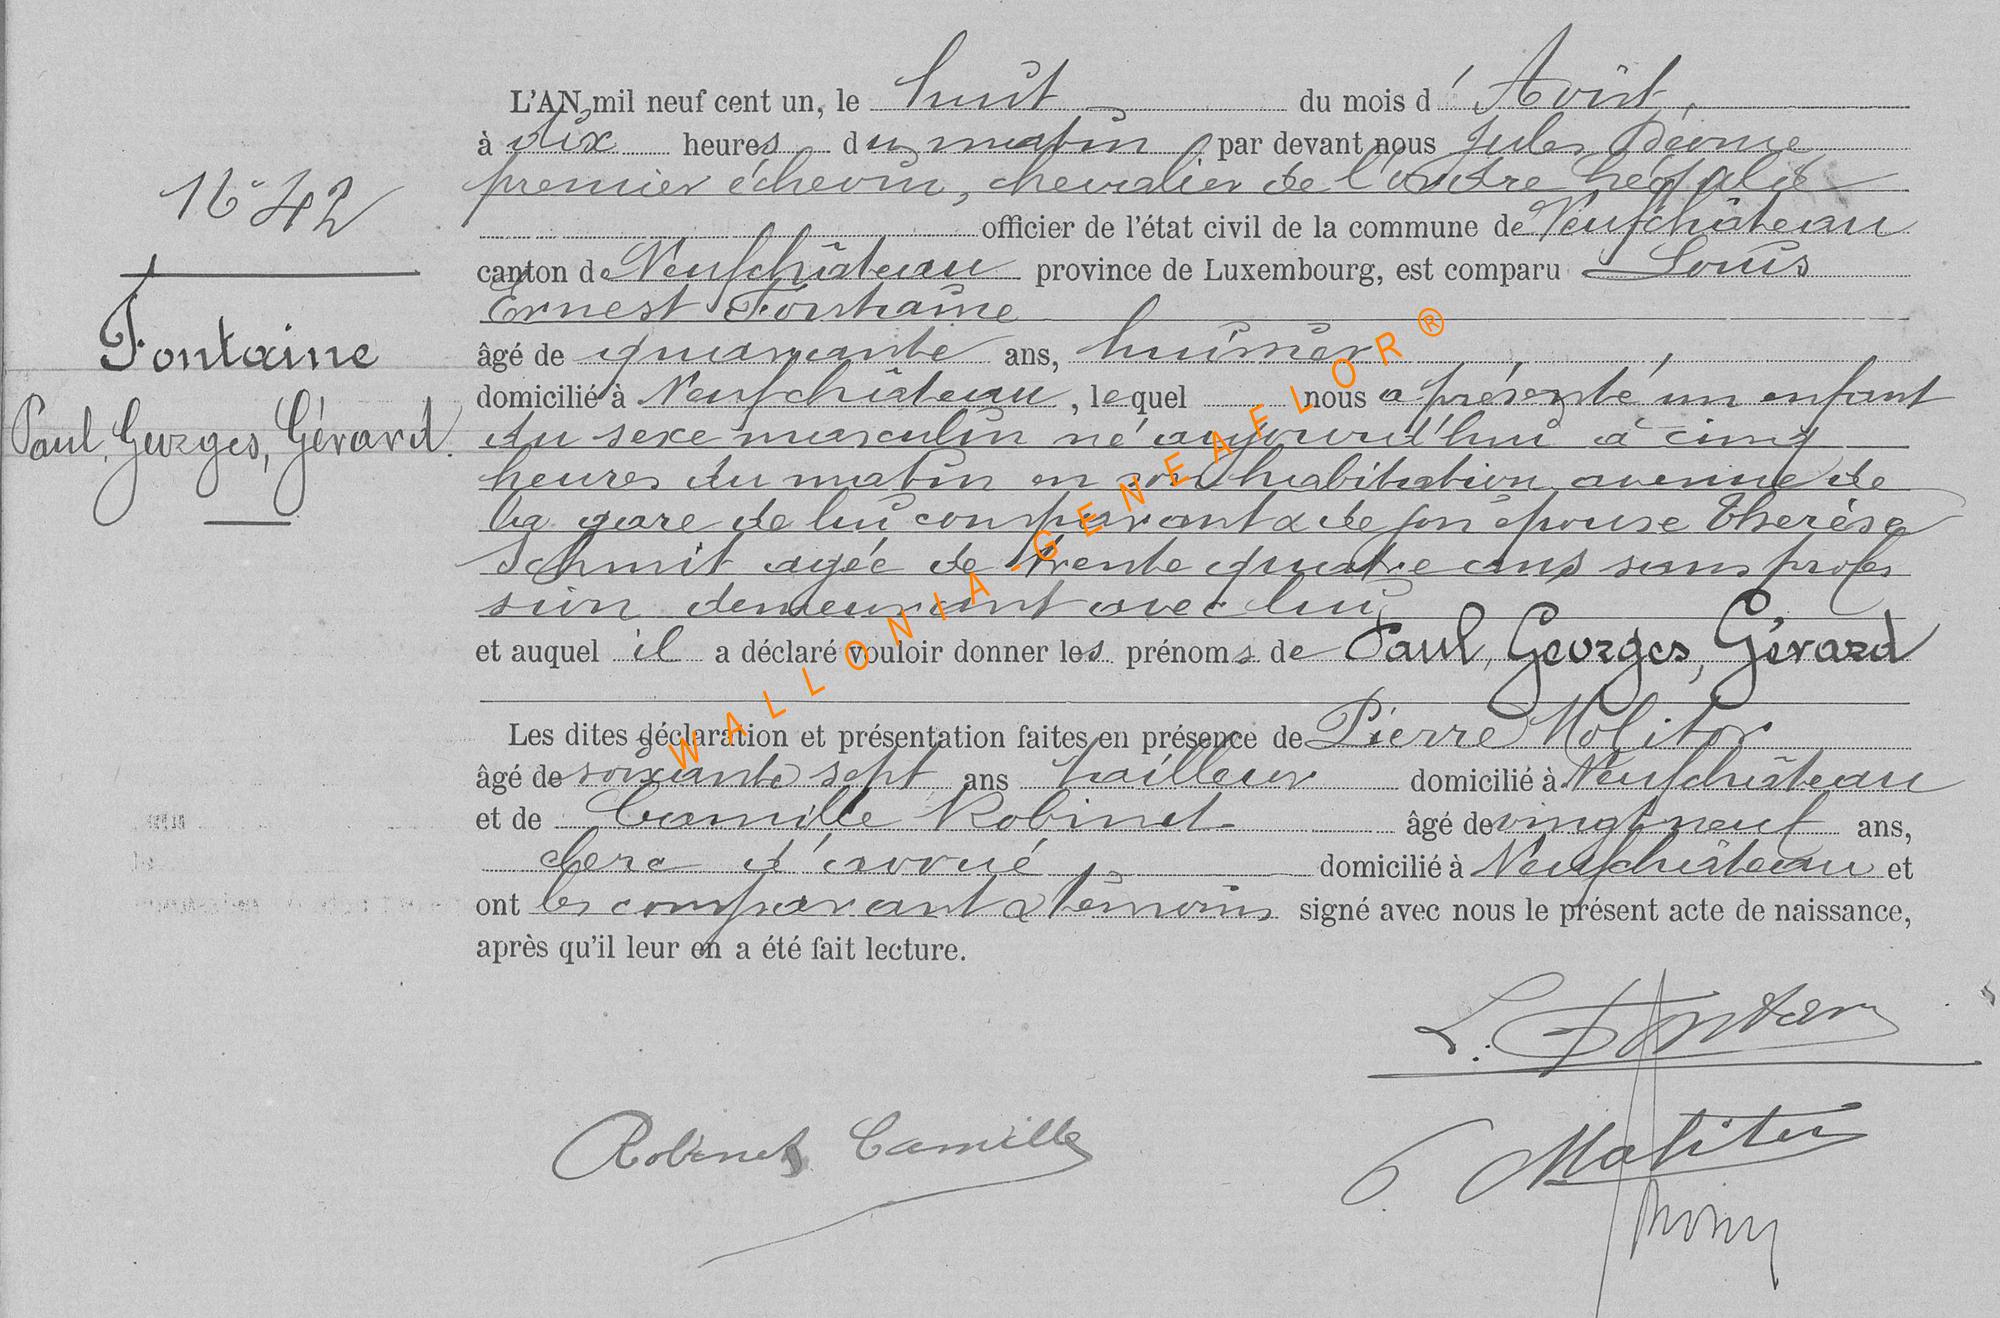 L'AN mil neuf cent un, le huit du mois d'Août,
à dix heures du matin, par devant nous Jules
premier échevin, chevalier de l'ordre Léopold
N° 42
officier de l'état civil de la commune de Neufchâteau
canton de Neufchâteau province de Luxembourg, est comparu Louis
Ernest Fontaine
âgé de quarante ans, huissier
Fontaine
domicilié à Neufchâteau, lequel nous a présenté un enfant
Paul, Georges, Gérard.
du sexe masculin né aujourd'hui à cinq
heures du matin en son habitation avenue de
la gare de lui comparant & de son épouse Therèse
Schmit agée de trente quatre ans sans profes
sion demeurant avec lui
et auquel il a déclaré vouloir donner les prénoms de Paul, Georges, Gérard
Les dites déclaration et présentation faites en présence de Pierre Molitor
âgé de soixante sept ans tailleur domicilié à Neufchâteau
et de Camille Robinet âgé de vingt neuf ans,
clerc d'avoué domicilié à Neufchâteau et
ont les comparant & témoins signé avec nous le présent acte de naissance,
après qu'il leur en a été fait lecture.
WALLONIA-GENEAFELOR®
L. Fontaine
Robinet Camille
P. Molitor